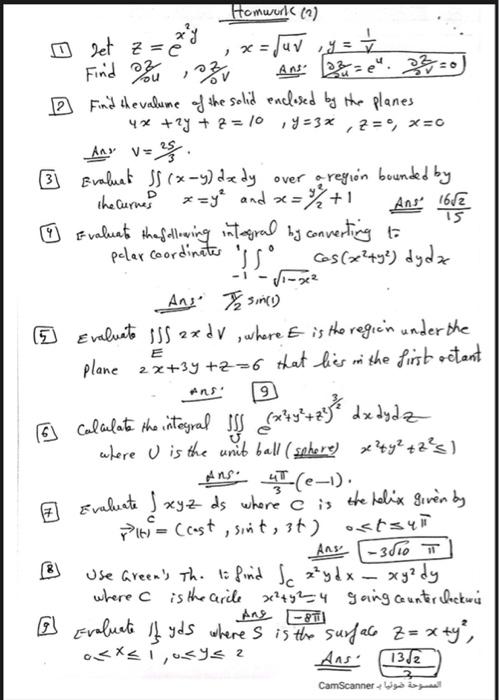 Homework (2)
1 Let z = e^{x²y} , x = √uv , y = 1/v
Find ∂z/∂u , ∂z/∂v Ans: ∂z/∂u = e^u . ∂z/∂v = 0
2 Find the valume of the solid enclosed by the planes
4x + 2y + z = 10 , y = 3x , z = 0, x = 0
Ans V = 25/3 .
3 Evaluat ∬_D (x-y) dx dy over a region bounded by
the curves x = y² and x = y²/2 + 1 Ans: 16√2/15
4 Evaluate the following integral by converting to
polar coordinates ∫_{-1}^{1} ∫_{-√1-x²}^{0} cos(x²+y²) dy dx
Ans: π/2 sin(1)
5 Evaluate ∭_E 2x dV , where E is the region under the
plane 2x+3y+z=6 that lies in the first octant
Ans: 9
6 Calculate the integral ∭_U e^{(x²+y²+z²)^{3/2}} dx dy dz
where U is the unit ball (sphere) x²+y²+z² ≤ 1
Ans: 4π/3 (e-1).
7 Evaluate ∫_C xyz ds where C is the helix given by
r(t) = (cost, sint, 3t) 0≤t≤4π
Ans: -3√10 π
8 Use Green's Th. to find ∫_C x²y dx - xy² dy
where C is the circle x²+y²=4 going counter clockwis
Ans -8π
9 Evaluate ∬_S y ds where S is the surfac z = x+y²,
0≤x≤1, 0≤y≤2 Ans: 13√2/3
الممسوحة ضوئيا بـ CamScanner